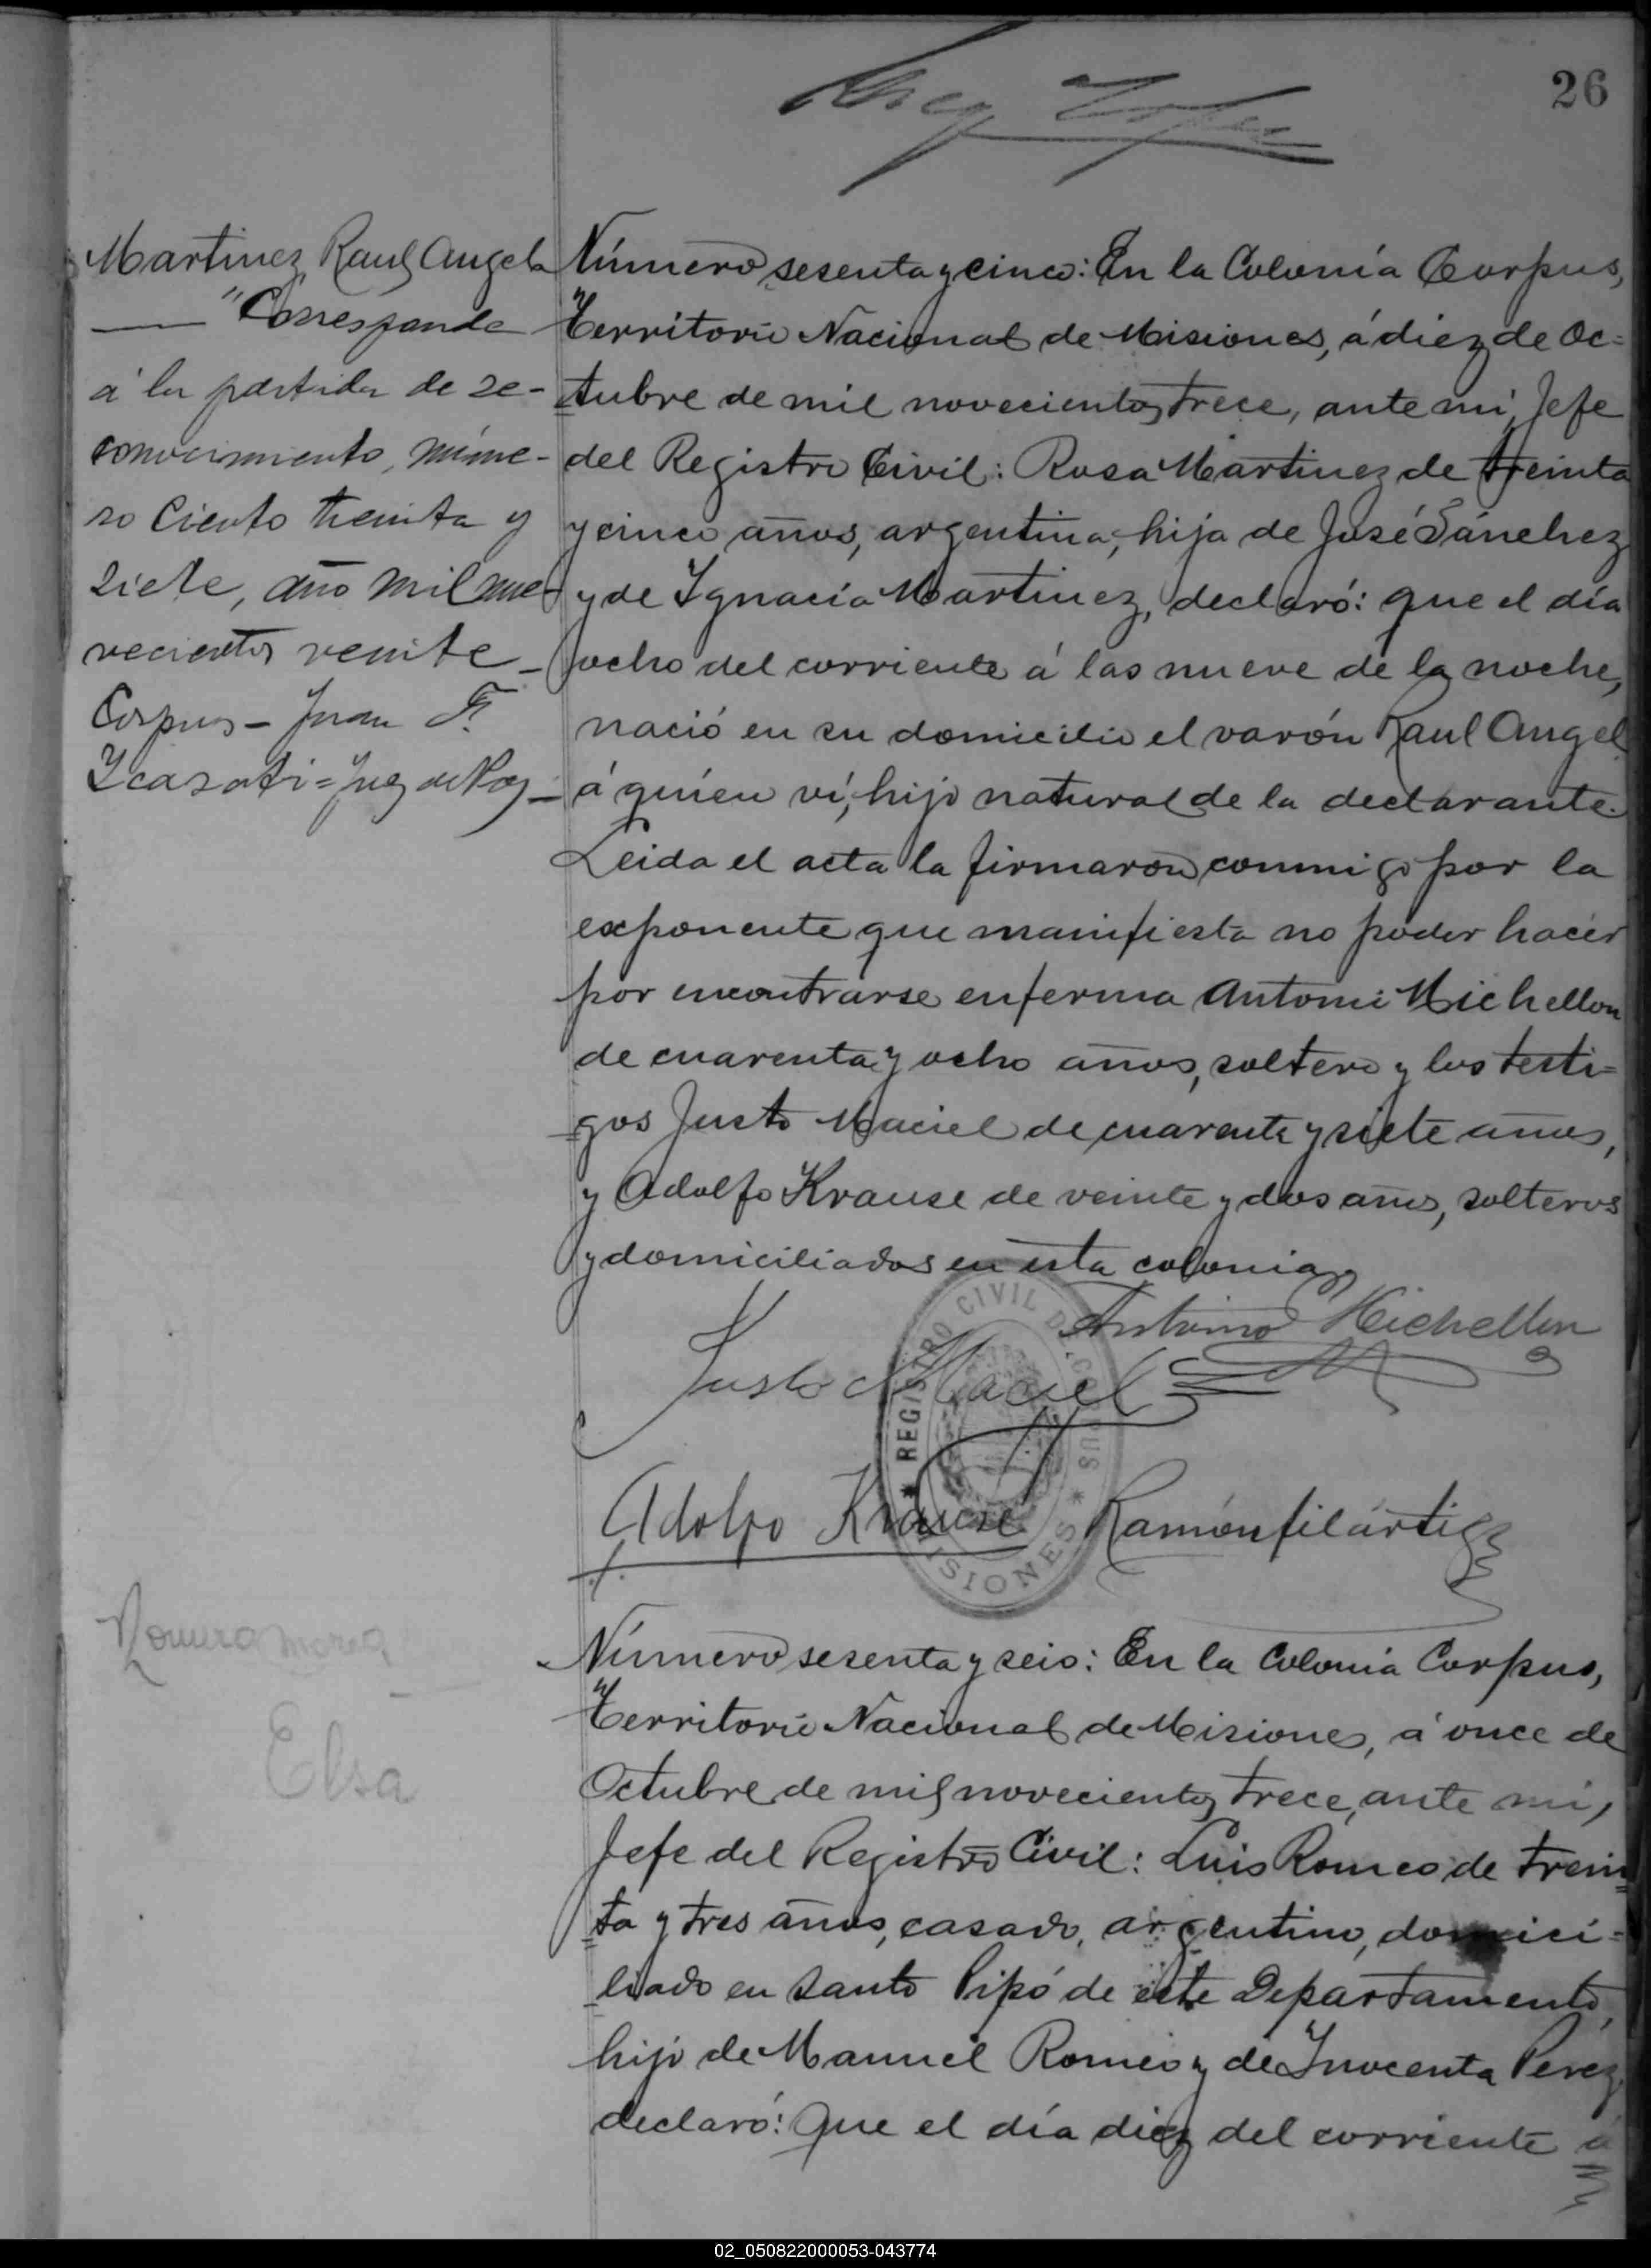 26
Martinez Raul Angel
"Corresponde
á la partida de re-
conocimiento, núme-
ro Ciento treinta y
siete, año mil nue-
vecientos veinte
Corpus - Juan F.
Juez de Paz
Número sesenta y cinco: En la Colonia Corpus,
Territorio Nacional de Misiones, á diez de Oc=
tubre de mil novecientos trece, ante mí, Jefe
del Registro Civil: Rosa Martinez de treinta
y cinco años, argentina, hija de José Sánchez
y de Ignacia Martinez, declaró: que el día
ocho del corriente á las nueve de la noche,
nació en su domicilio el varón Raul Angel
á quién ví, hijo natural de la declarante.
Leida el acta la firmaron conmigo por la
exponente que manifiesta no poder hacer
por encontrarse enferma Antonio Michellon
de cuarenta y ocho años, soltero y los testi=
gos Justo Maciel de cuarenta y siete años,
y Adolfo Krause de veinte y dos años, solteros
y domiciliados en esta colonia
Antonio Michellon
Justo Maciel
REGISTRO CIVIL DE CORPUS * MISIONES *
Adolfo Krause Ramón Filártiga
Romero
Elsa
Número sesenta y seis: En la Colonia Corpus,
Territorio Nacional de Misiones, á once de
Octubre de mil novecientos trece, ante mí,
Jefe del Registro Civil: Luis Romeo de trein=
ta y tres años, casado, argentino, domici=
liado en Santo Pipó de este Departamento,
hijo de Manuel Romeo y de Inocenta Perez,
declaró: Que el día diez del corriente á
02_050822000053-043774